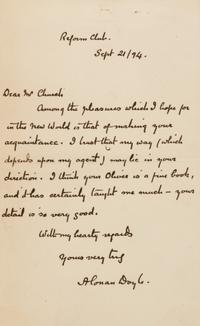 Reform Club.
Sept 21/94.
Dear Mr Church
Among the pleasures which I hope for
in the New World is that of making your
acquaintance. I trust that my way (which
depends upon my agent) may lie in your
direction. I think your Oliver is a fine book,
and it has certainly taught me much – your
detail is so very good.
With my hearty regards
Yours very truly
A Conan Doyle.